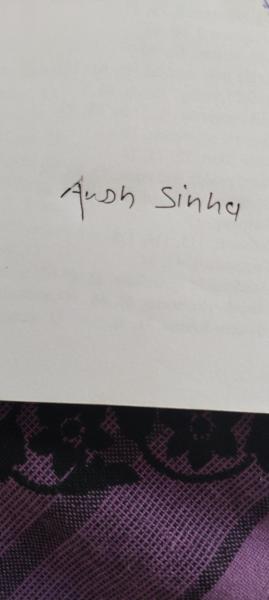 Ansh Sinha